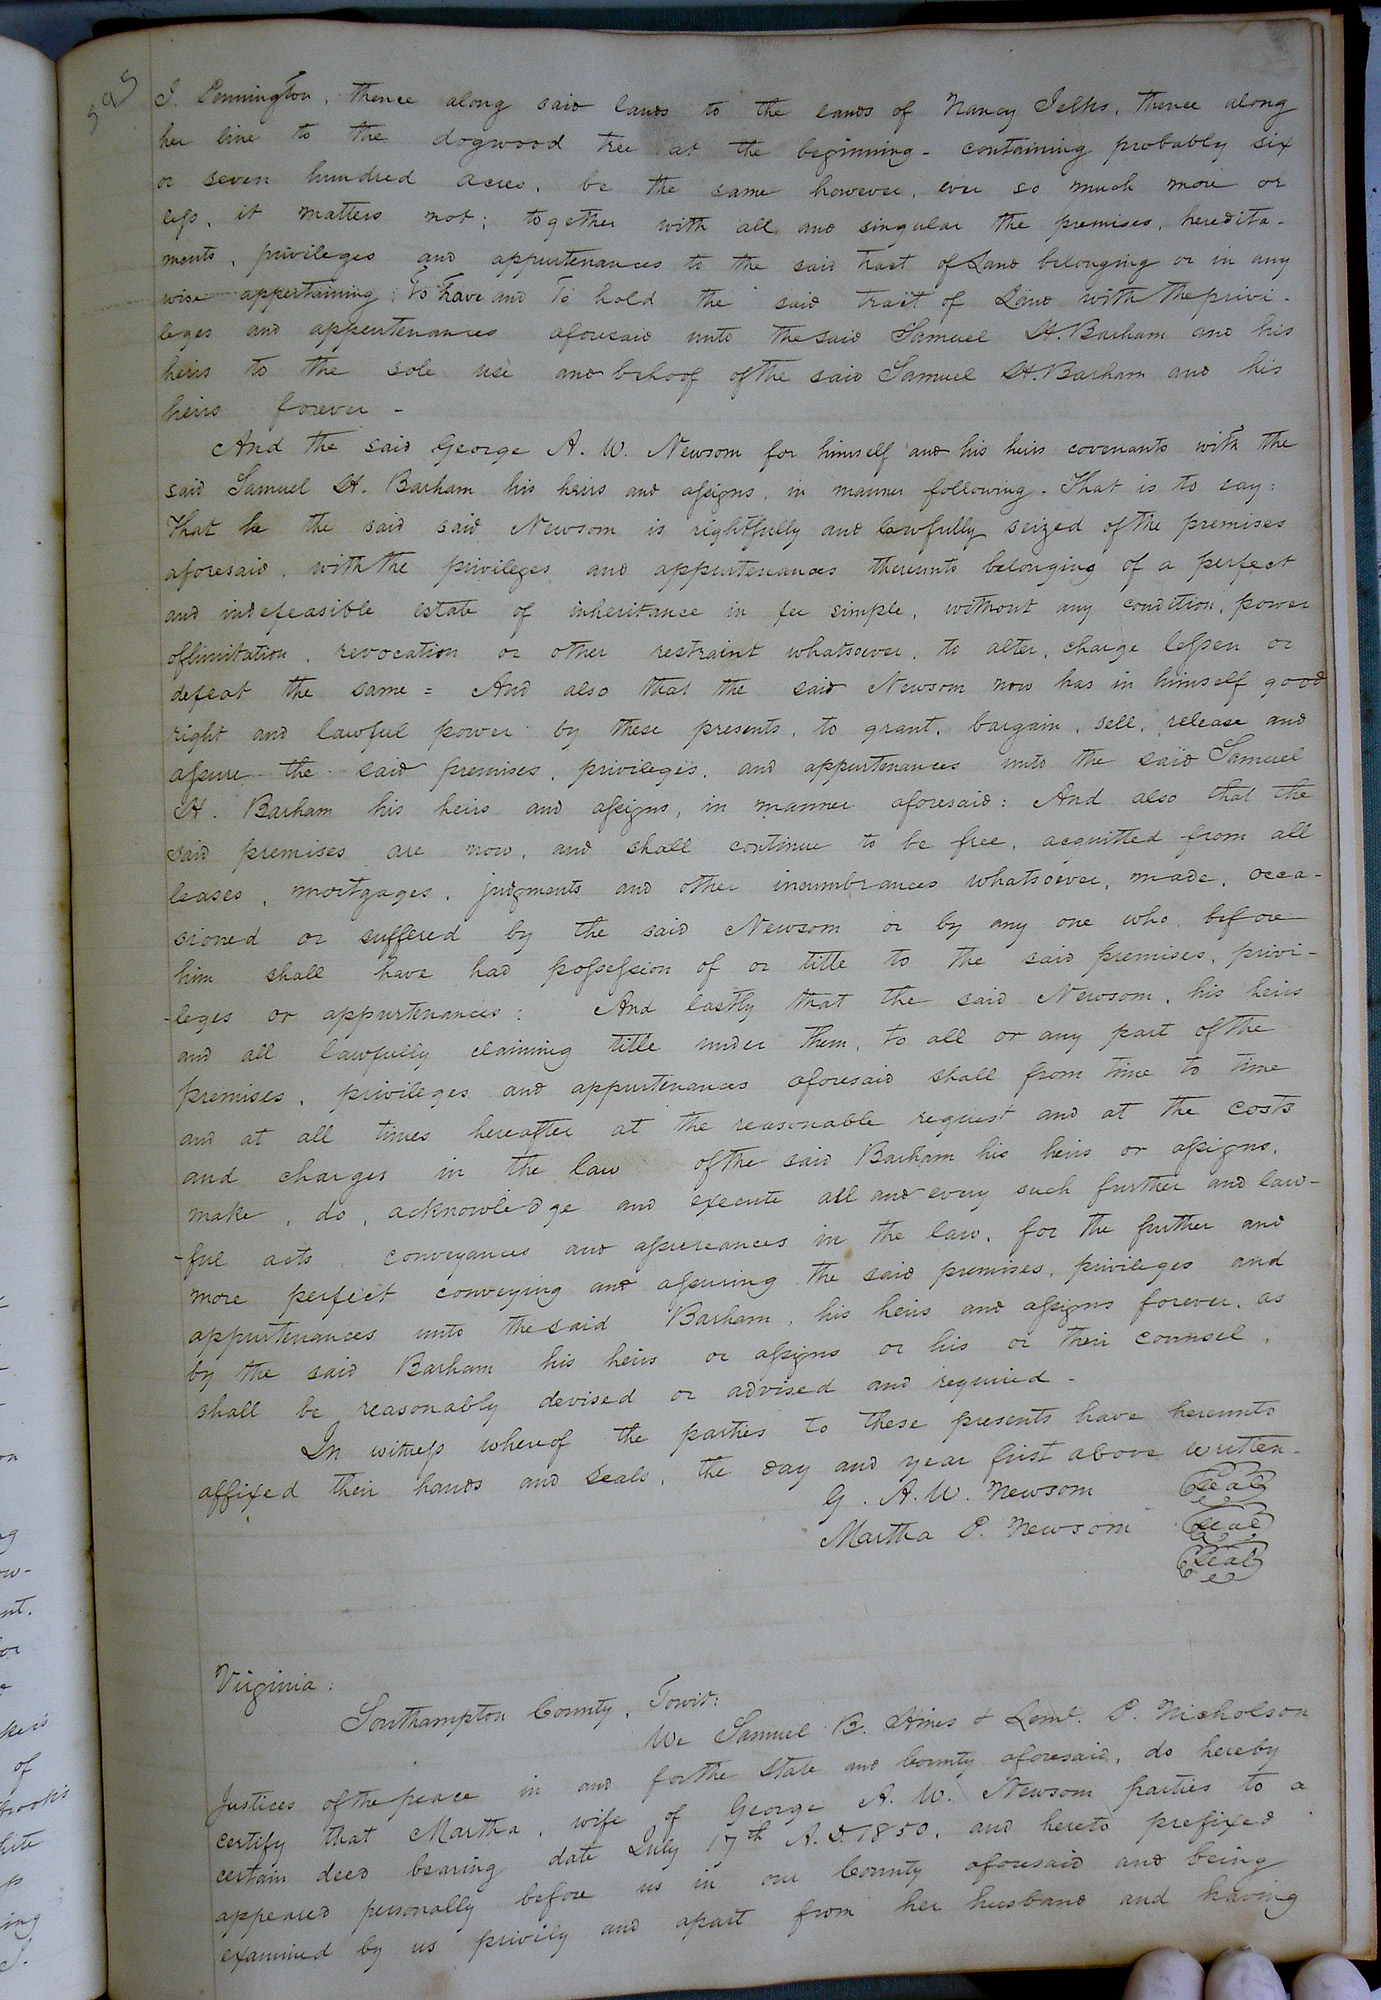 595
J. Pennington, thence along said lands to the lands of Nancy Jelks, thence along
her line to the dogwood tree at the beginning - containing probably six
or seven hundred acres, be the same however, ever so much more or
less, it matters not; together with all and singular the premises, heredita-
ments, privileges and appurtenances to the said tract of Land belonging or in any
wise appertaining; To have and To hold the said tract of Land with the privi-
leges and appurtenances aforesaid unto the said Samuel H. Barham and his
heirs to the sole use and behoof of the said Samuel H. Barham and his
heirs forever -
And the said George A. W. Newsom for himself and his heirs covenants with the
said Samuel H. Barham his heirs and assigns, in manner following - That is to say:
That he the said said Newsom is rightfully and lawfully seized of the premises
aforesaid, with the privileges and appurtenances thereunto belonging of a perfect
and indefeasible estate of inheritance in fee simple, without any condition, power
of limitation, revocation or other restraint whatsoever, to alter, charge lessen or
defeat the same = And also that the said Newsom now has in himself good
right and lawful power by these presents, to grant, bargain, sell, release and
assure the said premises, privileges, and appurtenances unto the said Samuel
H. Barham his heirs and assigns, in manner aforesaid: And also that the
said premises are now, and shall continue to be free, acquitted from all
leases, mortgages, judgments and other incumbrances whatsoever, made, occa-
sioned or suffered by the said Newsom or by any one who before
him shall have had possession of or title to the said premises, privi-
-leges or appurtenances: And lastly that the said Newsom, his heirs
and all lawfully claiming title under them, to all or any part of the
premises, privileges and appurtenances aforesaid shall from time to time
and at all times hereafter at the reasonable request and at the costs
and charges in the law of the said Barham his heirs or assigns,
make, do, acknowledge and execute all and every such further and law-
-ful acts, conveyances and assureances in the law, for the further and
more perfect conveying and assuring the said premises, privileges and
appurtenances unto the said Barham, his heirs and assigns forever, as
by the said Barham his heirs or assigns or his or their counsel,
shall be reasonably devised or advised and required -
In witness whereof the parties to these presents have hereunto
affixed their hands and seals, the day and year first above written -
G. A. W. Newsom Seal
Martha P. Newsom Seal
Seal
Virginia:
Southampton County, Towit:
We Samuel B. Hines & Leml. P. Nicholson
Justices of the peace in and for the State and County aforesaid, do hereby
certify that Martha, wife of George A. W. Newsom parties to a
certain deed bearing date July 17th A.D. 1850, and hereto prefixed
appeared personally before us in our County aforesaid and being
examined by us privily and apart from her husband and having